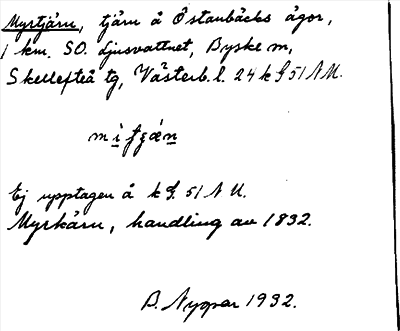 Myrtjärn, tjärn å Östanbäcks ägor,
1 km. SO. Ljusvattnet, Byske sn,
Skellefteå tg, Västerb. l. 24 k G 51 N U.
Ej upptagen å k G. 51 N U.
Myrkärn, handling av 1832.
B. Nygar 1932.